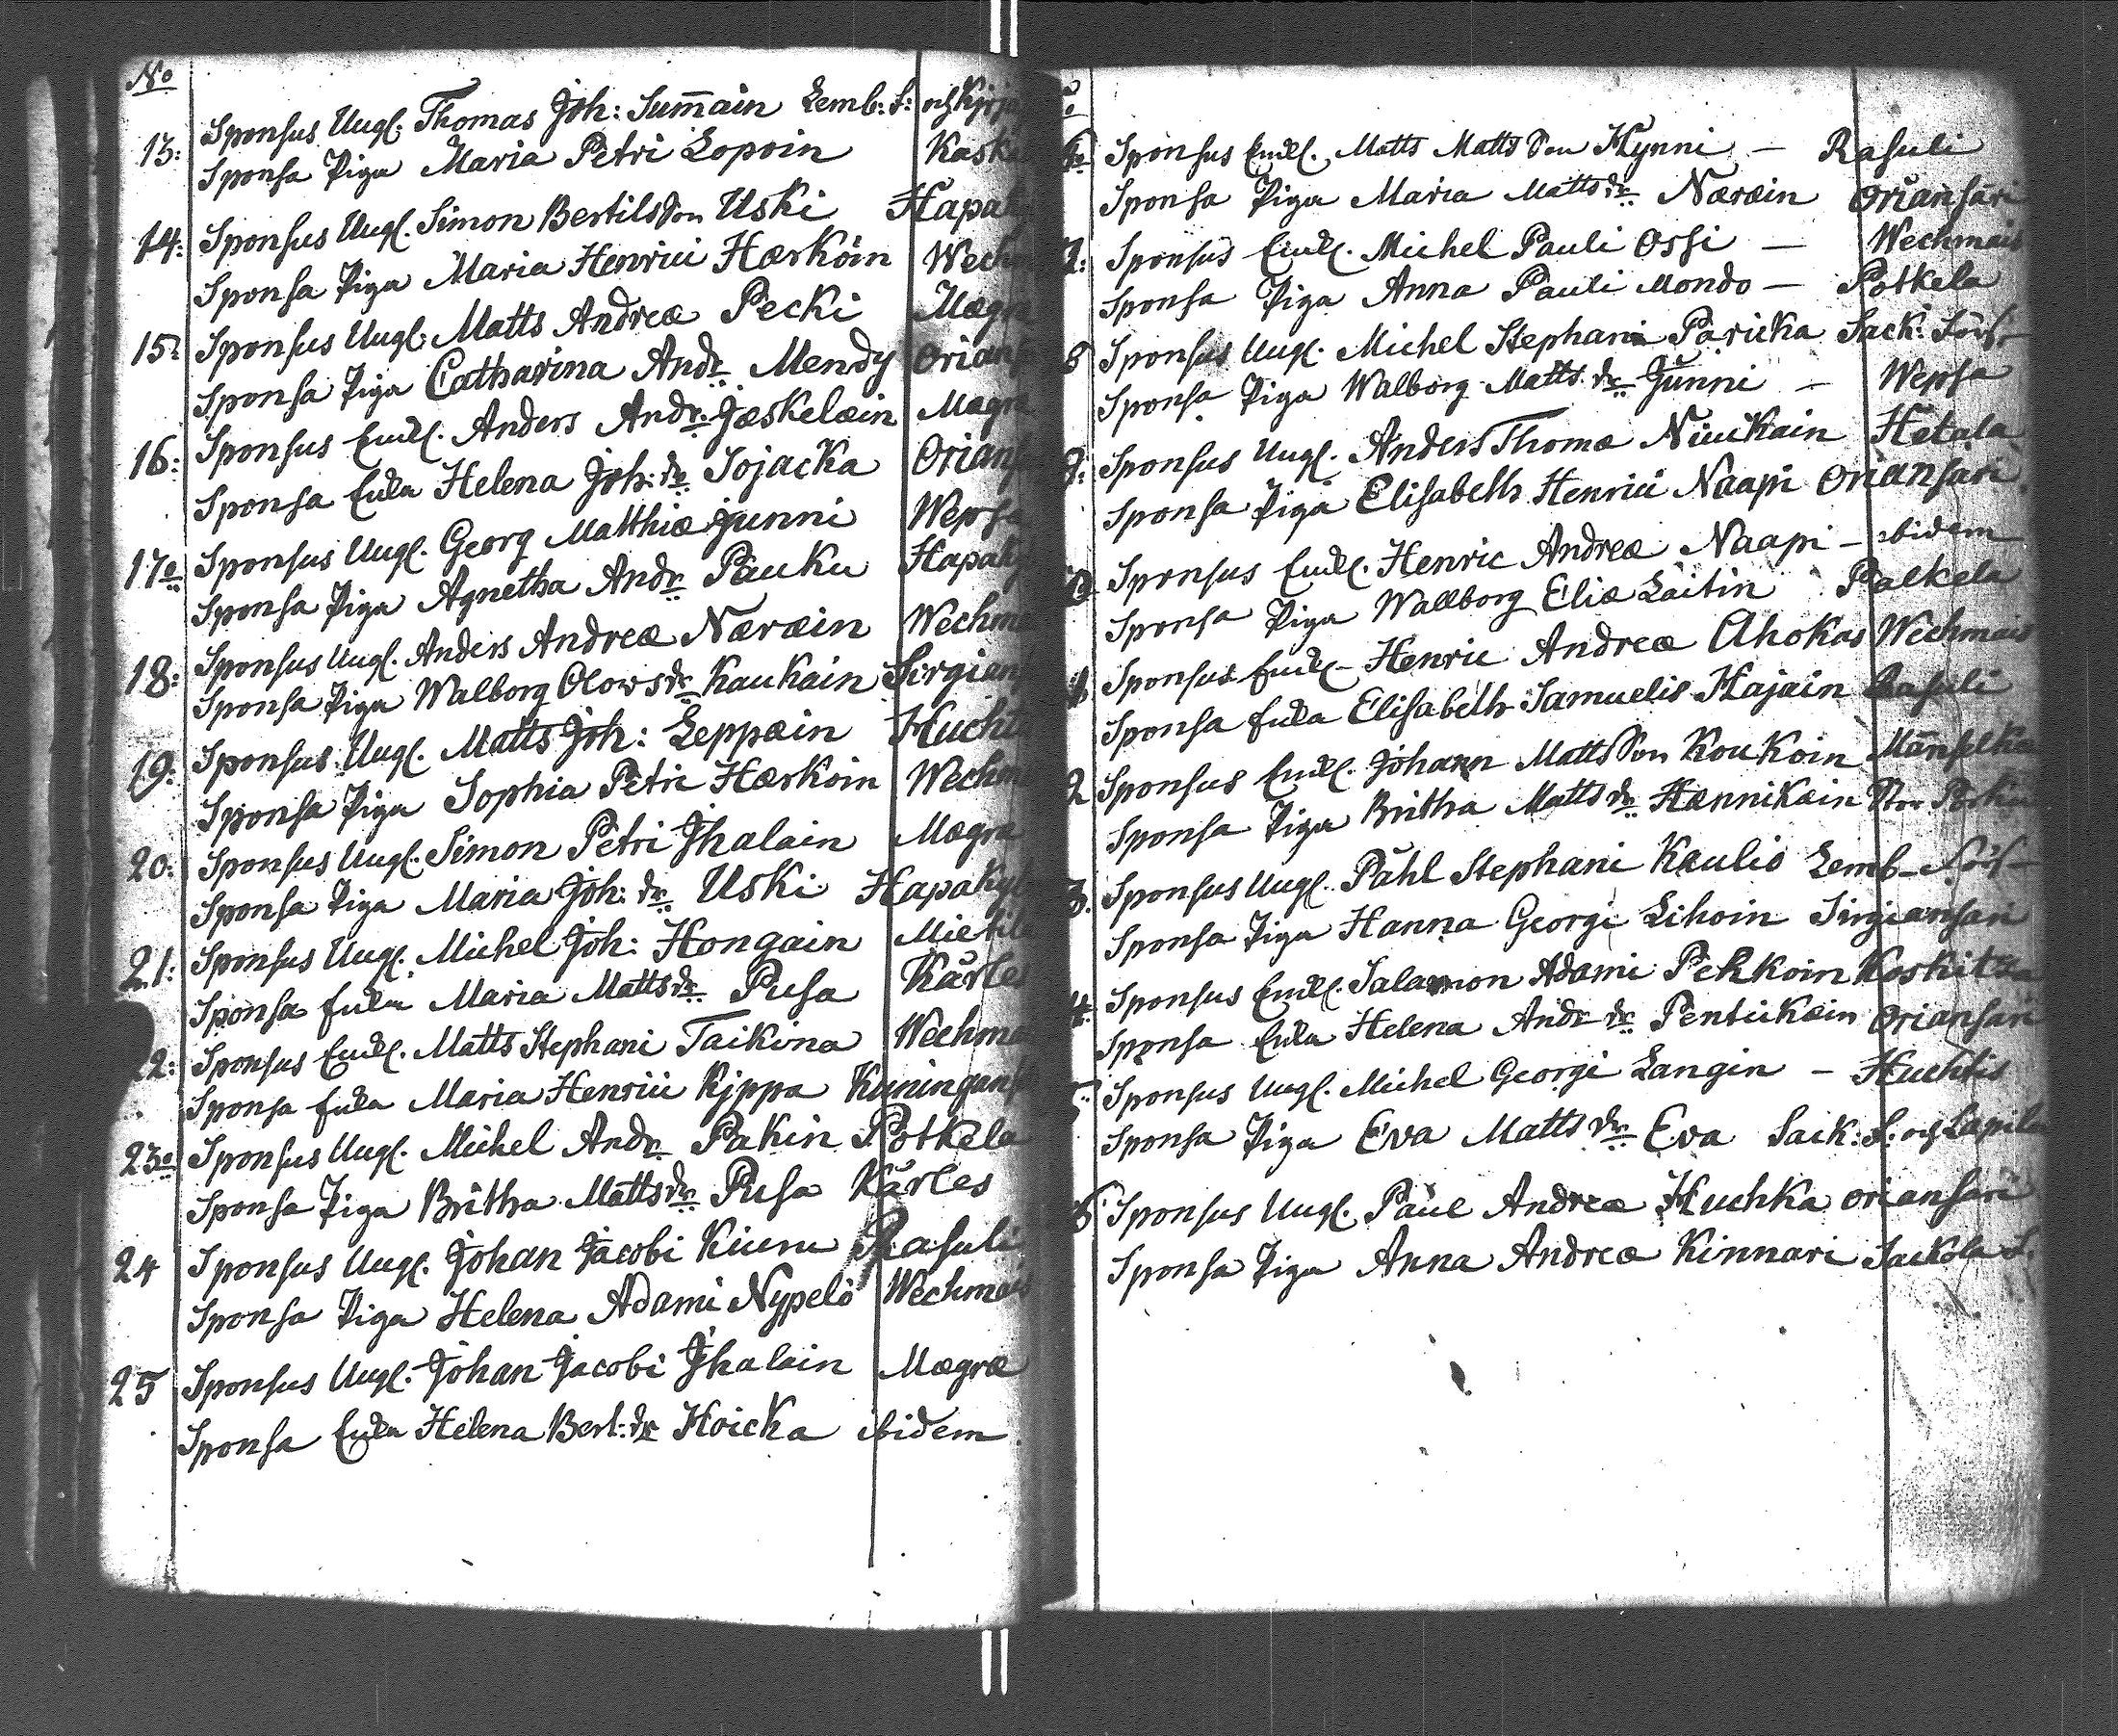 No
13: Sponsus Ungl. Thomas Joh: Sum̄ain Lemb: S: och Kirja
Sponsa Piga Maria Petri Lopoin Kaska
14: Sponsus Ungl. Simon Bertilsson Uski Hapaky
Sponsa Piga Maria Henrici Hærköin Wechm
15: Sponsus Ungl. Matts Andreæ Pecki Mægræ
Sponsa Piga Catharina Andr Mendy Orians
16: Sponsus Enkl. Anders Andr. Jæskelæin Mægræ
Sponsa Enka Helena Joh: dr Sojacka Orians
17o Sponsus Ungl. Georg Matthiæ Junni Wepsa
Sponsa Piga Agnetha Andr Pauku Hapaky
18: Sponsus Ungl. Anders Andreæ Næræin Wechma
Sponsa Piga Walborg Olowsdr Kaukain Sirgians
19: Sponsus Ungl. Matts Joh: Leppæin Huchti
Sponsa Piga Sophia Petri Hærköin Wechm
20: Sponsus Ungl. Simon Petri Jhalain Mægra
Sponsa Piga Maria Joh: dr Uski Hapakyl
21: Sponsus Ungl. Michel Joh: Hongain Mietil
Sponsa Enka Maria Mattsdr Pusa Kårles
22: Sponsus Enkl. Matts Stephani Taikina Wechma
Sponsa Enka Maria Henrici Kippa Kuningans
23o Sponsus Ungl. Michel Andr Pakin Potkela
Sponsa Piga Britha Mattsdr Pusa Kårles
24 Sponsus Ungl. Johan Jacobi Kiuru Rasuli
Sponsa Piga Helena Adami Nypelö Wechmais
25 Sponsus Ungl. Johan Jacobi Jhalain Mægræ
Sponsa Enka Helena Bert: dr Hoicka ibidem
Sponsus Enkl. Matts Matts Son Hynni – Rasuli
Sponsa Piga Maria Mattsdr Næræin Oriansari
Sponsus Enkl. Michel Pauli Ossi – Wechmais
Sponsa Piga Anna Pauli Mondo – Potkela
8 Sponsus Ungl. Michel Stephani Paricka Sack: Sörs
Sponsa Piga Walborg Matts dr Junni – Wepsa
Sponsus Ungl. Anders Thomæ Niuukain Hetala
Sponsa Piga Elisabeth Henrici Naapi Oriansari
Sponsus Enkl. Henric Andreæ Naapi – ibidem
Sponsa Piga Wallborg Eliæ Laitin Palkela
Sponsus Enkl. Henric Andreæ Ahokas Wechmais
Sponsa Enka Elisabeth Samuelis Hajain Rasuli
2 Sponsus Enkl. Johann Matts Son Koukoin Mänselkä
Sponsa Piga Britha Matts dr Hænnikæin Stor Porku
3. Sponsus Ungl. Påhl Stephani Kaulio Lemb – Sörs
Sponsa Piga Hanna Georgi Lihoin Sirgiansari
4: Sponsus Enkl. Salamon Adami Pekkoin Koskitza
Sponsa Enka Helena Andr dr Pentikæin Oriansari
5 Sponsus Ungl. Michel Georgi Langin – Huchtis
Sponsa Piga Eva Matts dr Eva Sack: S: och Lapila
6 Sponsus Ungl. Paul Andreæ Huchka Oriansari
Sponsa Piga Anna Andreæ Kinnari Sackola S.